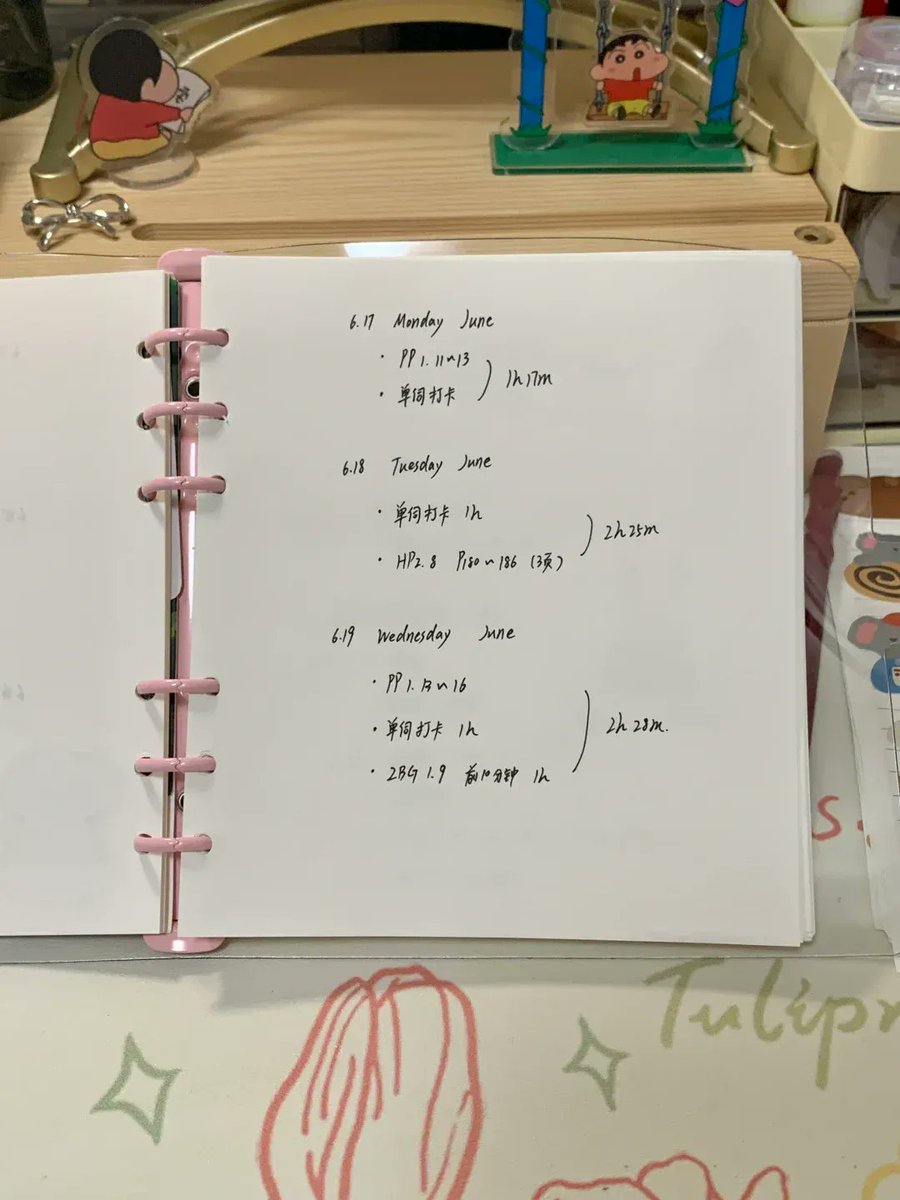 6.17 Monday June
· PP 1. 11~13
· 单词打卡
1h17m
6.18 Tuesday June
· 单词打卡 1h
· HP2.8 P180~186 (3页)
2h25m
6.19 Wednesday June
· PP 1. 13~16
· 单词打卡 1h
· 2BG 1.9 前10分钟 1h
2h28m.
s.
Tulip